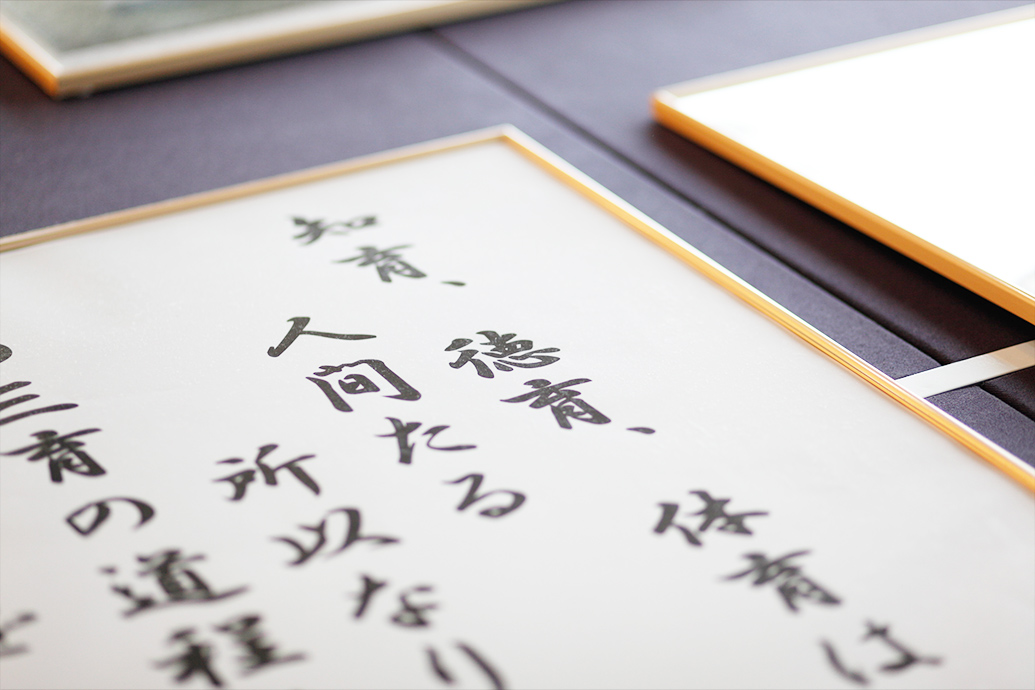 知育、徳育、体育は
人間たる
所以なり
三育の道程